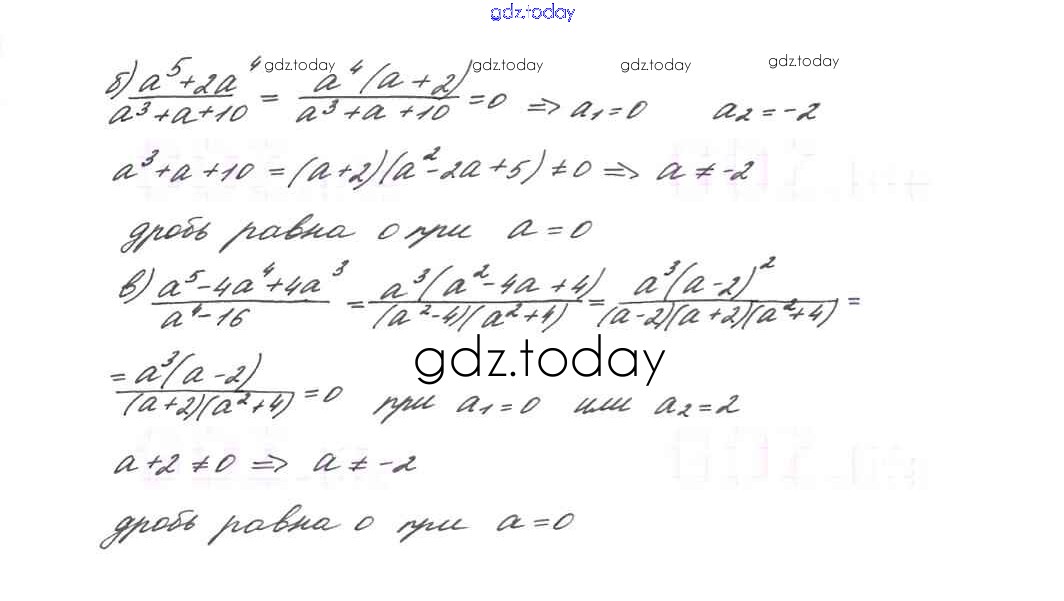 gdz.today
б) (a⁵+2a⁴)/(a³+a+10) = (a⁴(a+2))/(a³+a+10) = 0 ⇒ a₁=0 a₂=-2
gdz.today gdz.today gdz.today gdz.today
a³+a+10 = (a+2)(a²-2a+5) ≠ 0 ⇒ a ≠ -2
дробь равна 0 при a = 0
в) (a⁵-4a⁴+4a³)/(a⁴-16) = (a³(a²-4a+4))/((a²-4)(a²+4)) = (a³(a-2)²)/((a-2)(a+2)(a²+4)) =
gdz.today
= (a³(a-2))/((a+2)(a²+4)) = 0 при a₁=0 или a₂=2
a+2 ≠ 0 ⇒ a ≠ -2
дробь равна 0 при a=0